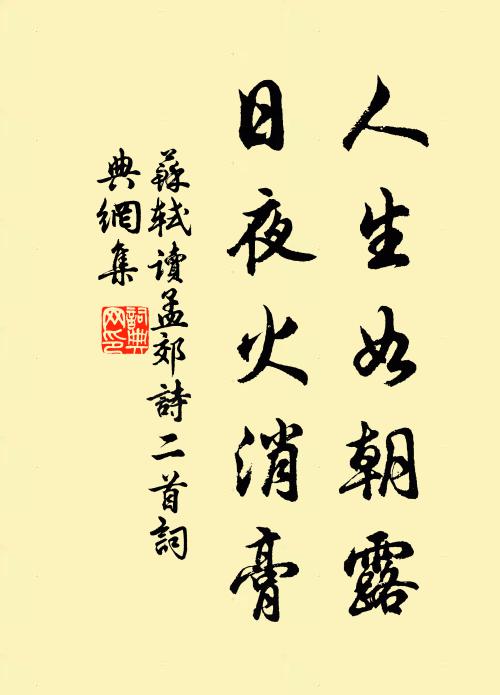 人生如朝露
日夜火消膏
蘇軾讀孟郊詩二首詞
典網集
詞典
网印